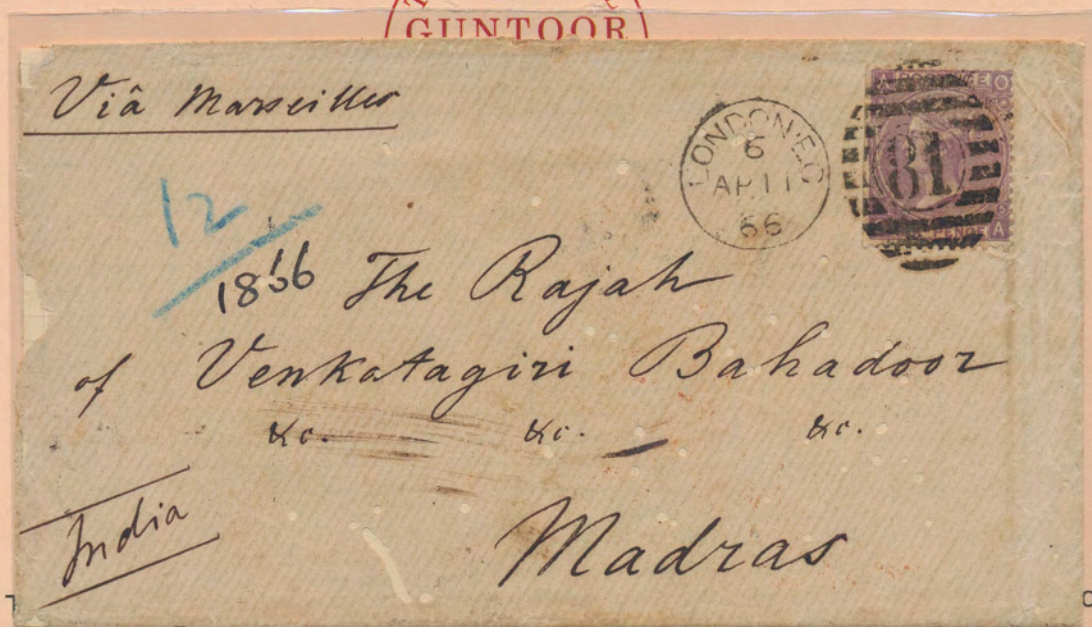 GUNTOOR
Viâ Marseilles
LONDON·E.C
6
AP 11
66
81
12
1866
The Rajah
of Venkatagiri Bahadoor
&c. &c. &c.
India
Madras